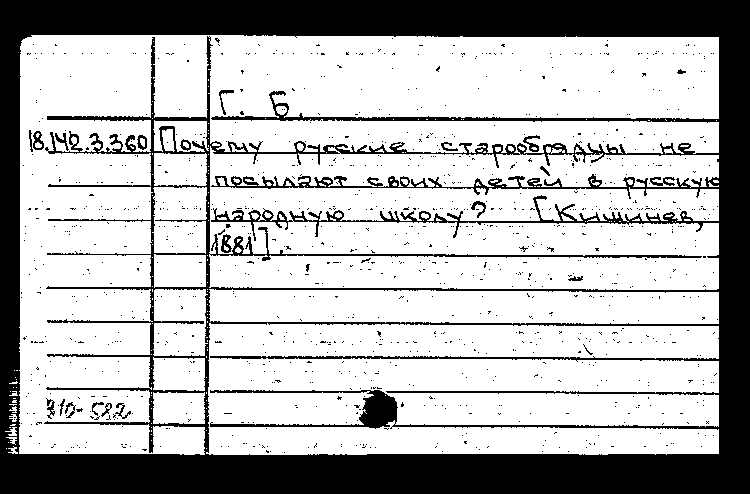 Г. Б.
18.142.3.360 Почему русские старообрядцы не
посылают своих детей в русскую
народную школу? [Кишинев,
1881].
310-582